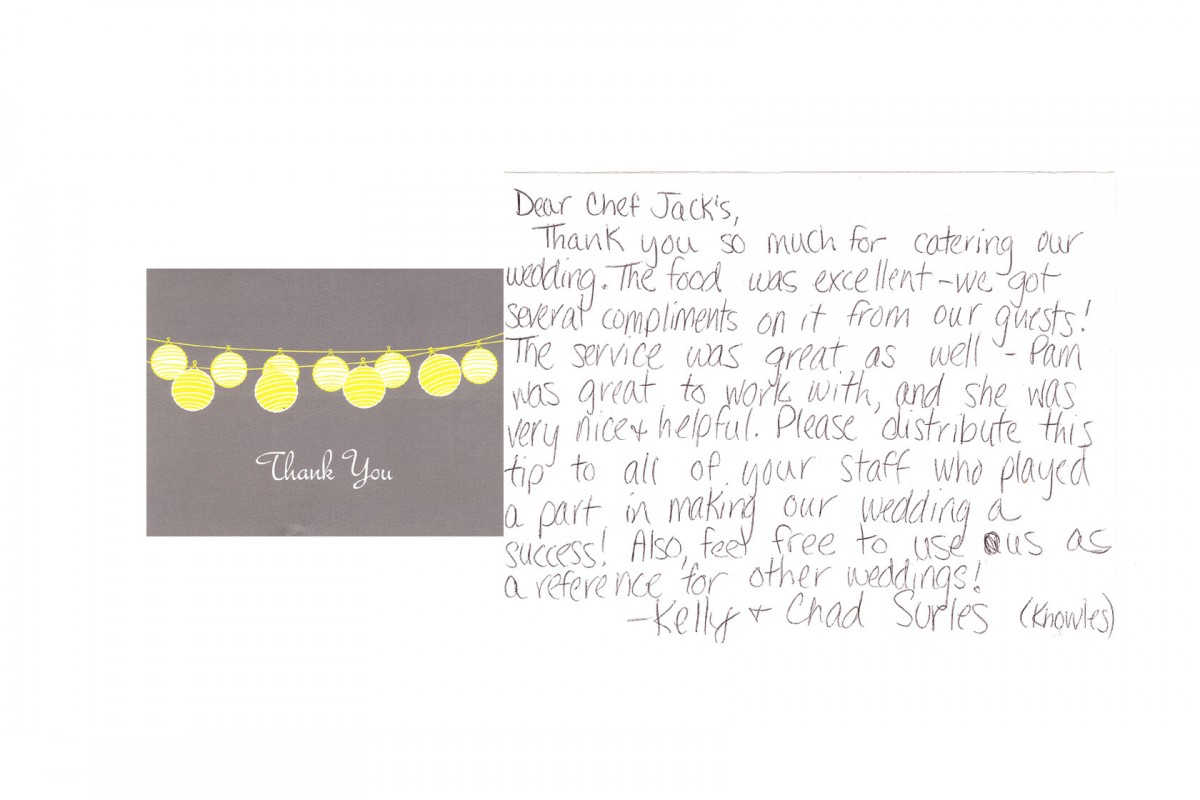 Thank You
Dear Chef Jack's,
Thank you so much for catering our
wedding. The food was excellent - we got
several compliments on it from our guests!
The service was great as well - Pam
was great to work with, and she was
very nice + helpful. Please distribute this
tip to all of your staff who played
a part in making our wedding a
success! Also, feel free to use us as
a reference for other weddings!
- Kelly + Chad Surles (Knowles)